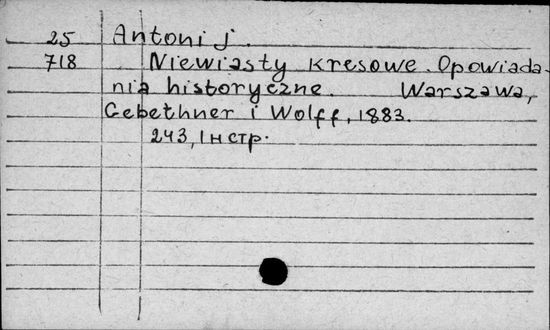 25 Antoni j.
718 Niewiasty kresowe. Opowiada-
nia historyczne. Warszawa,
Gebethner i Wolff, 1883.
243, 1 н стр.